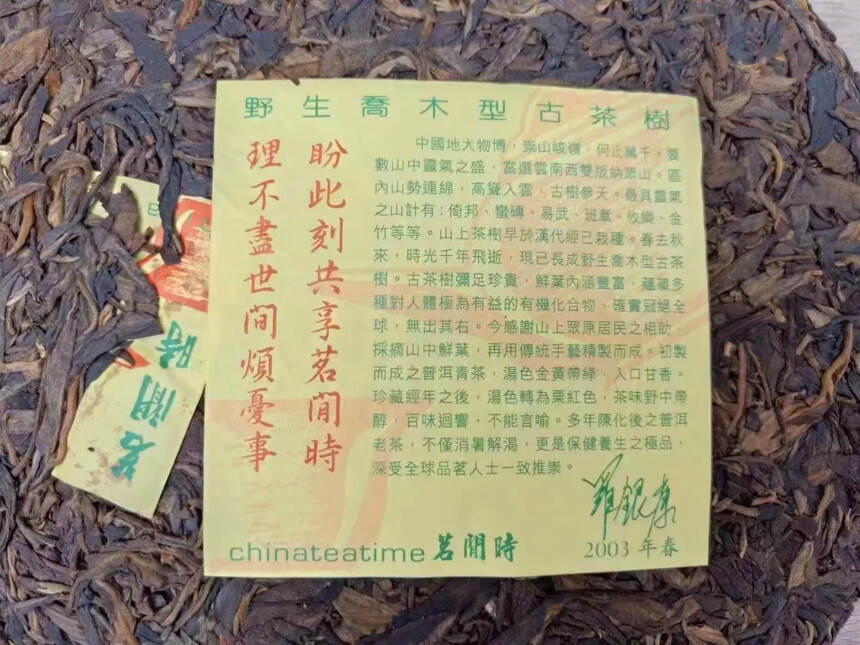 野生喬木型古茶樹
盼此刻共享茗閒時
理不盡世间煩憂事
中國地大物博，崇山峻嶺，何止萬千，要
數山中靈氣之盛，當選雲南西雙版納眾山。區
內山勢連綿，高聳入雲，古樹參天。最具靈氣
之山計有：倚邦、蠻磚、易武、班章、攸樂、金
竹等等。山上茶樹早於漢代經已栽種。春去秋
來，時光千年飛逝，現已長成野生喬木型古茶
樹。古茶樹彌足珍貴，鮮葉內涵豐富，蘊藏多
種對人體極為有益的有機化合物，確實冠絕全
球，無出其右。今感謝山上眾原居民之相助，
採摘山中鮮葉，再用傳統手藝精製而成。初製
而成之普洱青茶，湯色金黃帶綠，入口甘香。
珍藏經年之後，湯色轉為栗紅色，茶味野中帶
醇，百味迴響，不能言喻。多年陳化後之普洱
老茶，不僅消暑解渴，更是保健養生之極品，
深受全球品茗人士一致推崇。
羅銀康
chinateatime 茗閒時
2003 年春
茗閒時